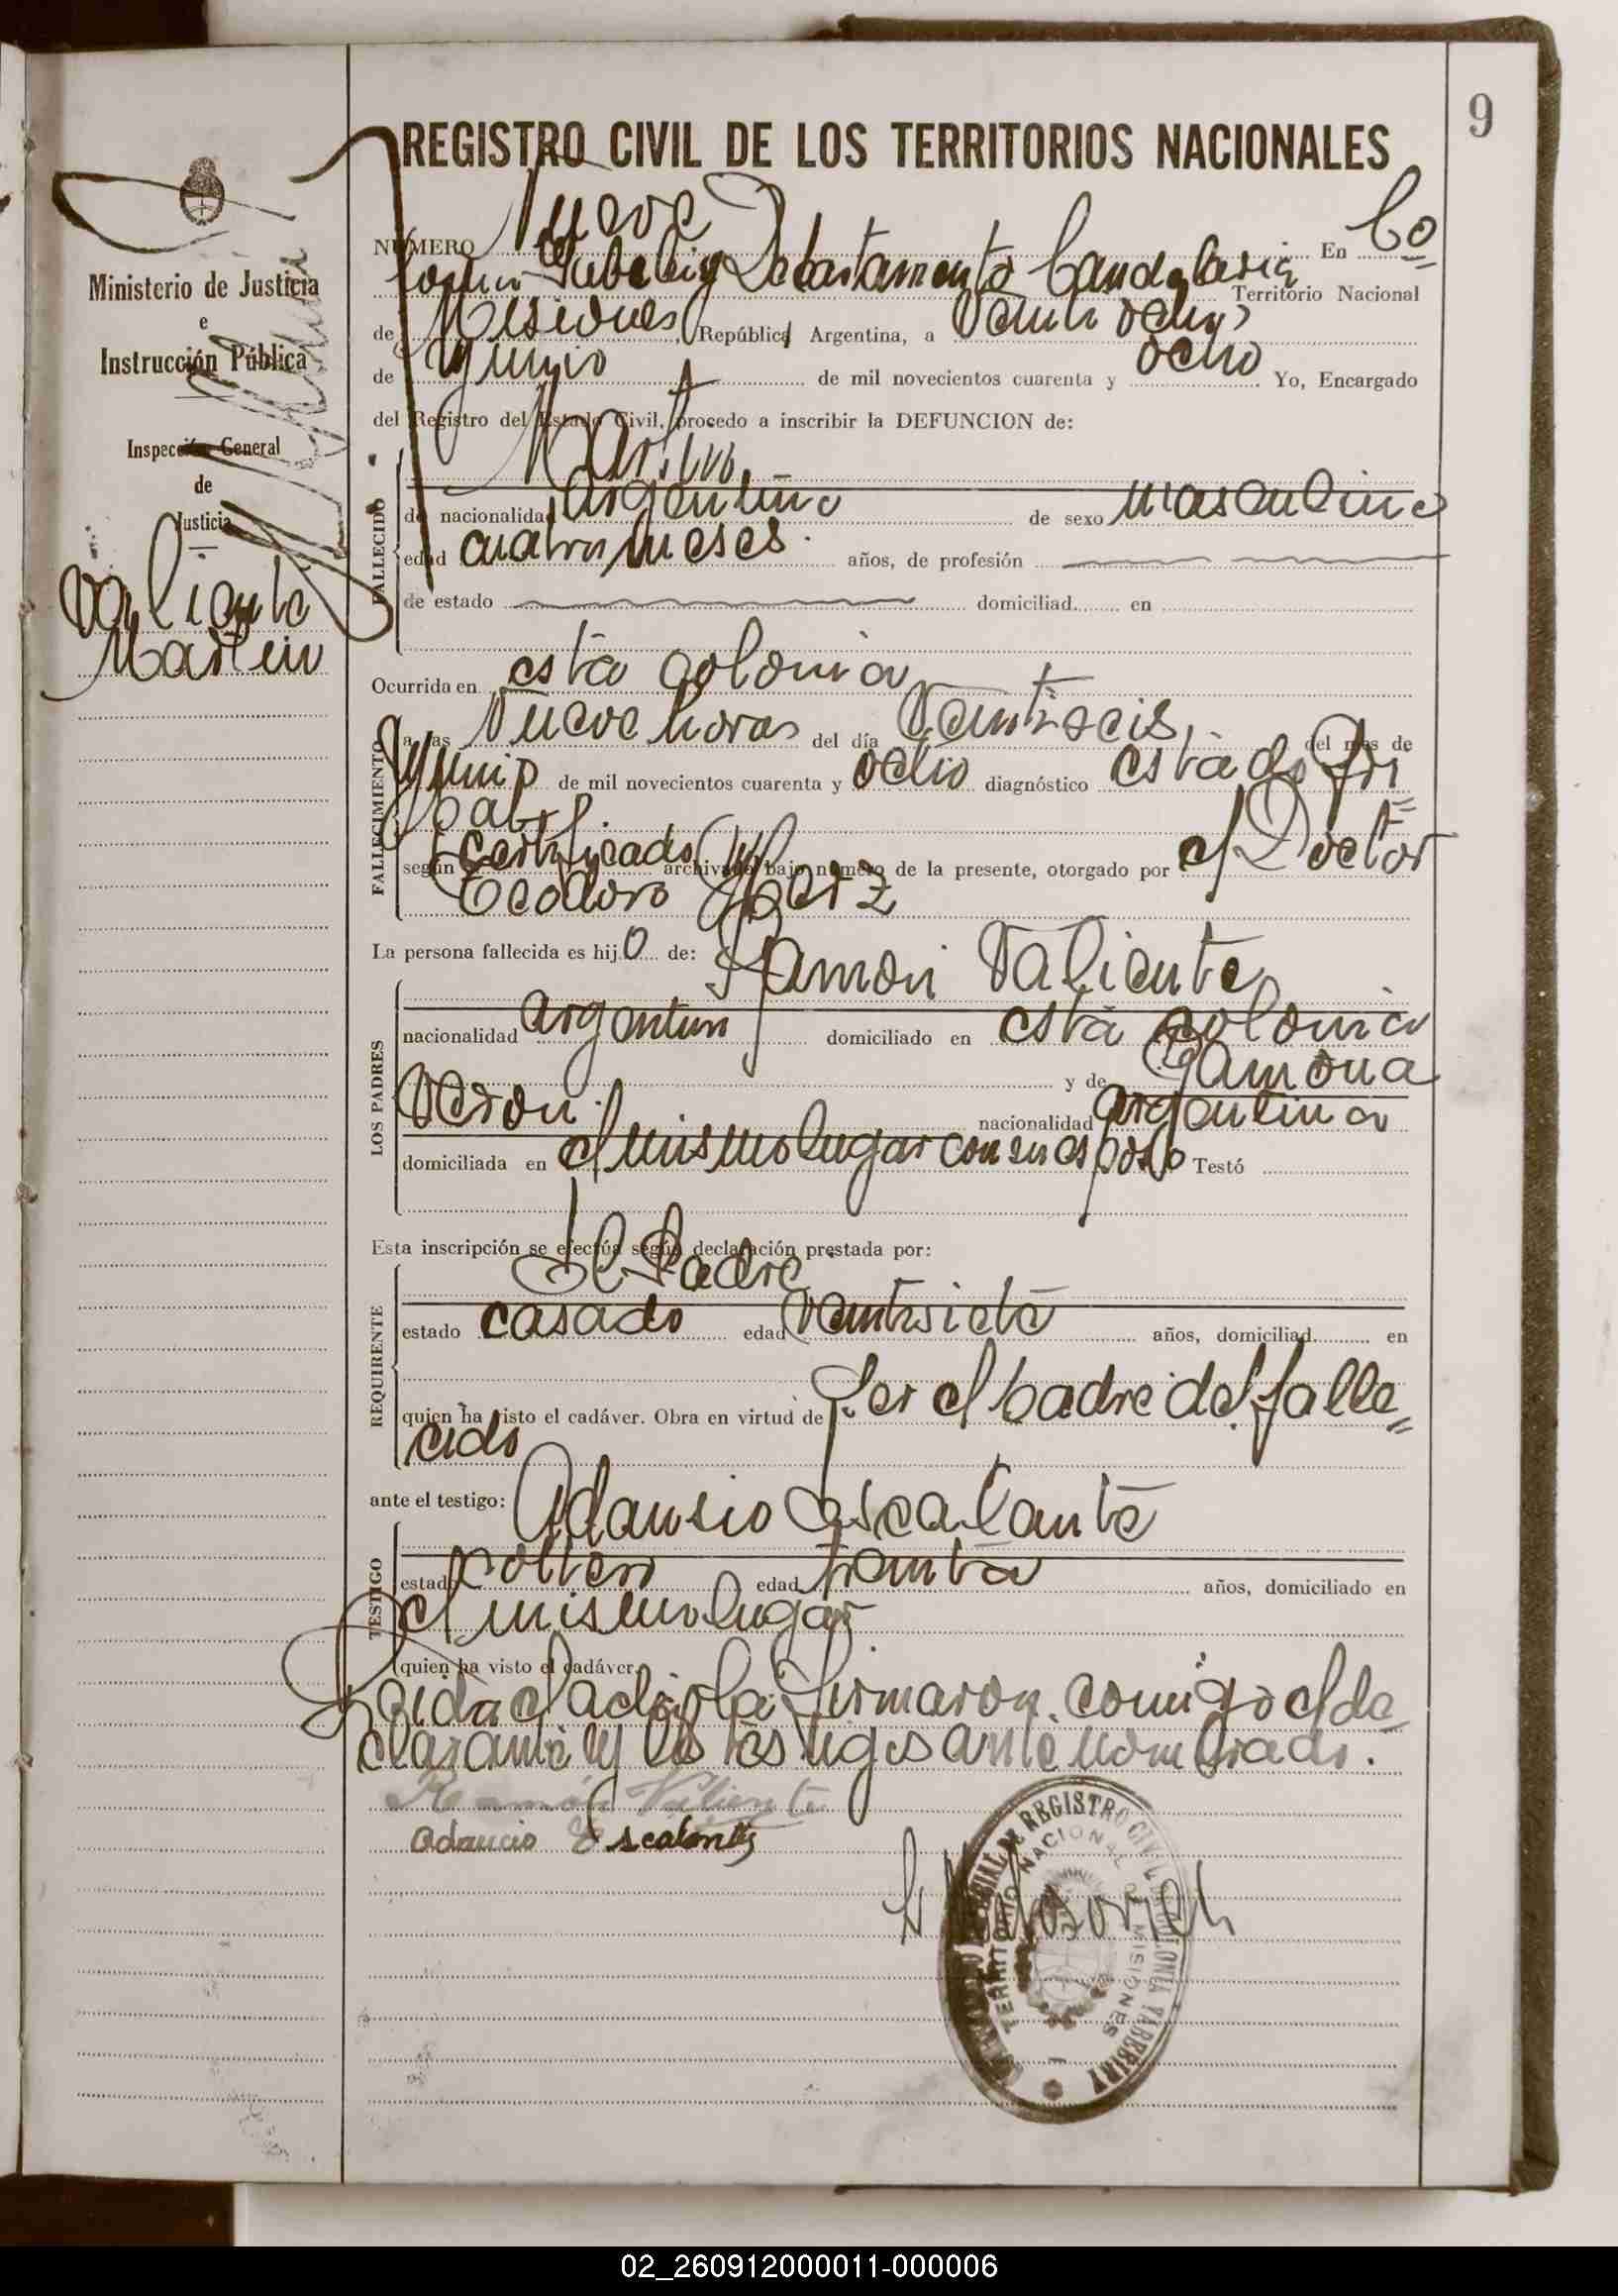 9
REGISTRO CIVIL DE LOS TERRITORIOS NACIONALES
Ministerio de Justicia
e
Instrucción Pública
Inspección General
de
Justicia
Valiente
Martin
NÚMERO Nueve En Co
lonia Departamento Candelaria Territorio Nacional
de Misiones República Argentina, a
de Junio de mil novecientos cuarenta y ocho Yo, Encargado
del Registro del Estado Civil, procedo a inscribir la DEFUNCION de:
Martin
FALLECIDO
de nacionalidad argentino de sexo masculino
edad cuatro meses años, de profesión
de estado domiciliad en
Ocurrida en esta colonia
FALLECIMIENTO
a las Nueve horas del día Veintiseis del mes de
Junio de mil novecientos cuarenta y ocho diagnóstico estado
según certificado archivado bajo número de la presente, otorgado por el Doctor
Teodoro
La persona fallecida es hijo de: Ramon Valiente
LOS PADRES
nacionalidad argentino domiciliado en esta colonia
y de Ramona
Veron nacionalidad argentina
domiciliada en el mismo lugar con su esposo Testó
Esta inscripción se efectúa según declaración prestada por:
El Padre
REQUIRENTE
estado casado edad Veintisiete años, domiciliad en
quien ha visto el cadáver. Obra en virtud de Ser el padre del falle
cido
ante el testigo: Adaucio Escalante
TESTIGO
estado soltero edad treinta años, domiciliado en
el mismo lugar
quien ha visto el cadáver.
Leida el acta la firmaron comigo el de
clarante y los testigos ante nombrado.
Ramón Valiente
Adaucio Escalante
REGISTRO CIVIL
TERRITORIO NACIONAL DE MISIONES
02_260912000011-000006